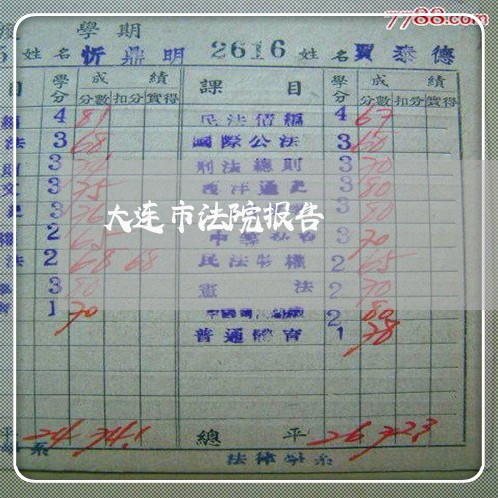 7788.com
學期
姓名 忻鼎明 2616 姓名 賈泰德
目 學分 成績 課目 學分 成績
分數 扣分 實得 分數 扣分 實得
4 81 民法債編 4 67
法 3 68 國際公法 3 60
3 刑法總則 3 70
3 75 西洋通史 3 80
3 3 80
大连市法院报告
權 2 3 70
法 2 68 68 民法物權 2 65
3 80 憲法 2 70
1 70 2 80
普通體育 1 78
平 24 74.1 總平 26 72.3
系 法律學系